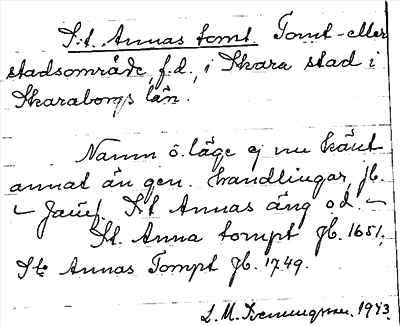 S:t Annas tomt. Tomt- eller
stadsområde, f.d., i Skara stad i
Skaraborgs län.
Namn o. läge ej nu känt
annat än gen. handlingar, jb.
– Jämf. S:t Annas äng o.d. –
St. Anna tompt Jb. 1651,
Ste Annas Tompt Jb. 1749.
L. M. 1943.